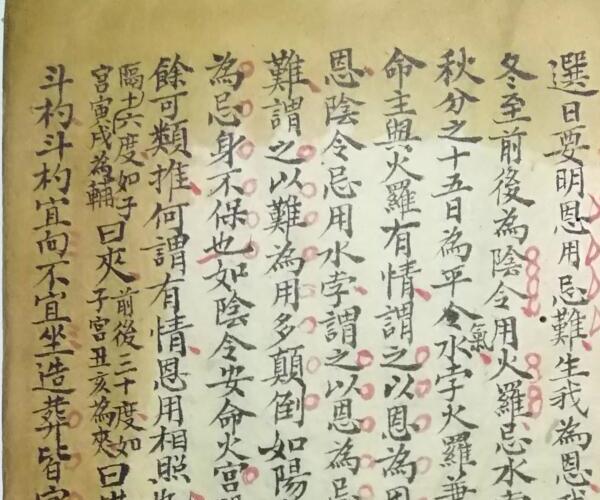 選日要明恩用忌難生我為恩
冬至前後為陰令用火羅忌水
秋分之十五日為平令氣水孛火羅兼
命主與火羅有情謂之以恩為用
恩陰令忌用水孛謂之以恩為忌
難謂之以難為用多顛倒如陽
為忌身不保也如陰令安命火宮
餘可類推何謂有情恩用相照
隔十六度如子
宮寅戌為輔
曰夾
前後三十度如
子宮丑亥為夾
曰
斗杓斗杓宜向不宜坐造葬皆